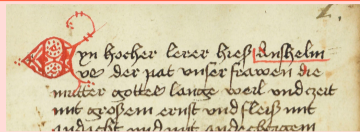 Eyn hocher lerer hieß Anshelm
der pat vnser frawen die
muter gottes lange weil vnd zeit
mit großem ernst vnd fleiß mit
andacht vnd mit